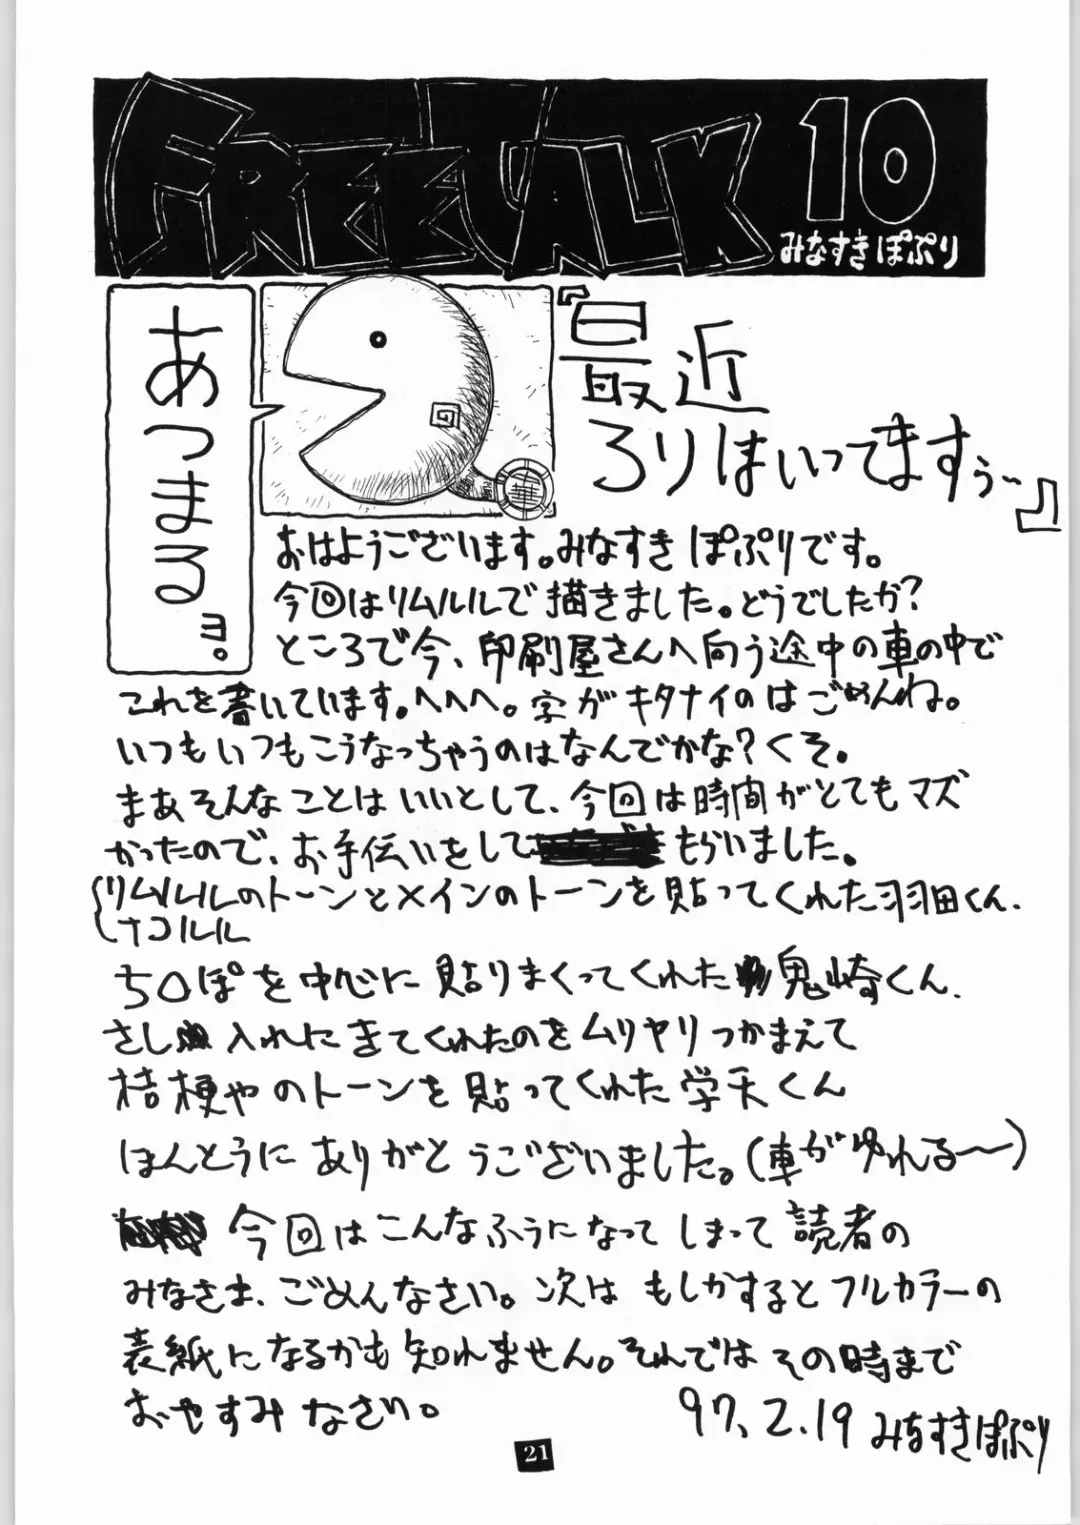 FREE TALK 10
みなすきぽぷり
あつまるヨ。
回
中華
『最近
ろりはいってますぅ~』
おはようございます。みなすきぽぷりです。
今回はリムルルで描きました。どうでしたか?
ところで今、印刷屋さんへ向う途中の車の中で
これを書いています。へへへ。字がキタナイのはごめんね。
いつもいつもこうなっちゃうのはなんでかな?くそ。
まあそんなことはいいとして、今回は時間がとてもマズ
かったので、お手伝いをしてもらいました。
リムルルのトーンとメインのトーンを貼ってくれた羽田くん.
ナコルル
ち○ぽを中心に貼りまくってくれた鬼崎くん.
さし入れにきてくれたのをムリヤリつかまえて
桔梗やのトーンを貼ってくれた学天くん
ほんとうにありがとうございました。(車がゆれる〜)
今回はこんなふうになってしまって読者の
みなさま、ごめんなさい。次はもしかするとフルカラーの
表紙になるかも知れません。それではその時まで
おやすみなさい。 97, 2.19 みなすきぽぷり
21